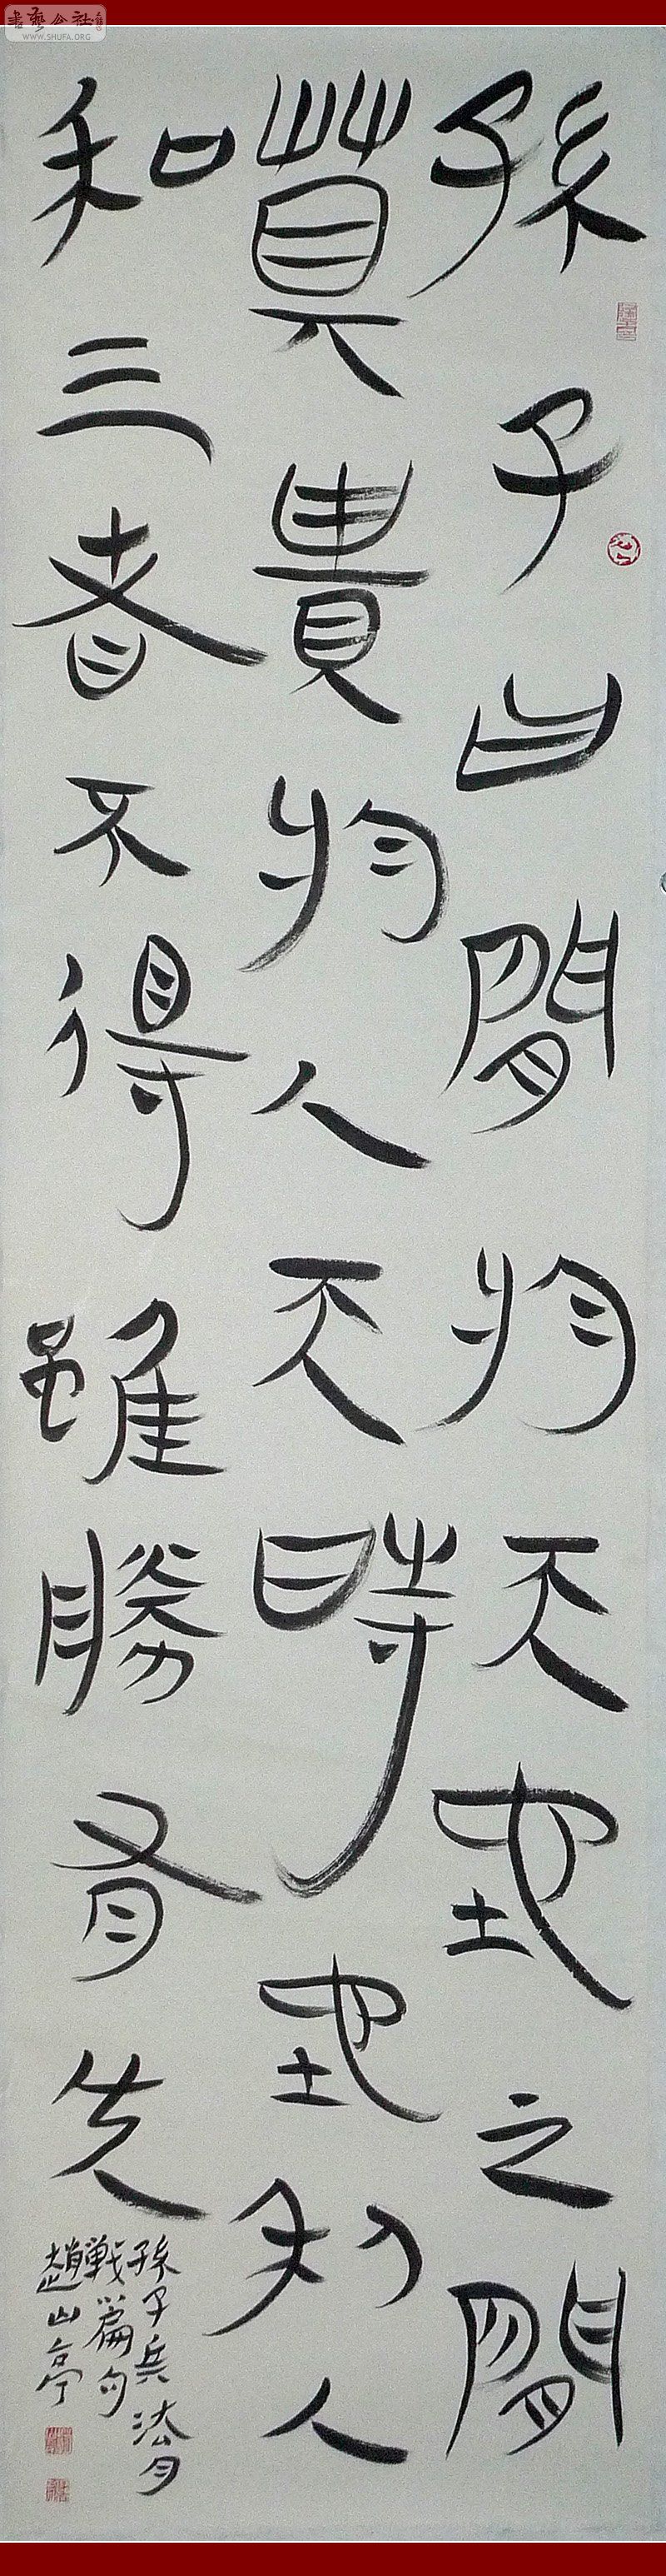 書藝公社
WWW.SHUFA.ORG
孫子曰閒於天地之閒
莫貴於人天時地利人
和三者不得雖勝有央
孫子兵法月
戦篇句
趙山亭